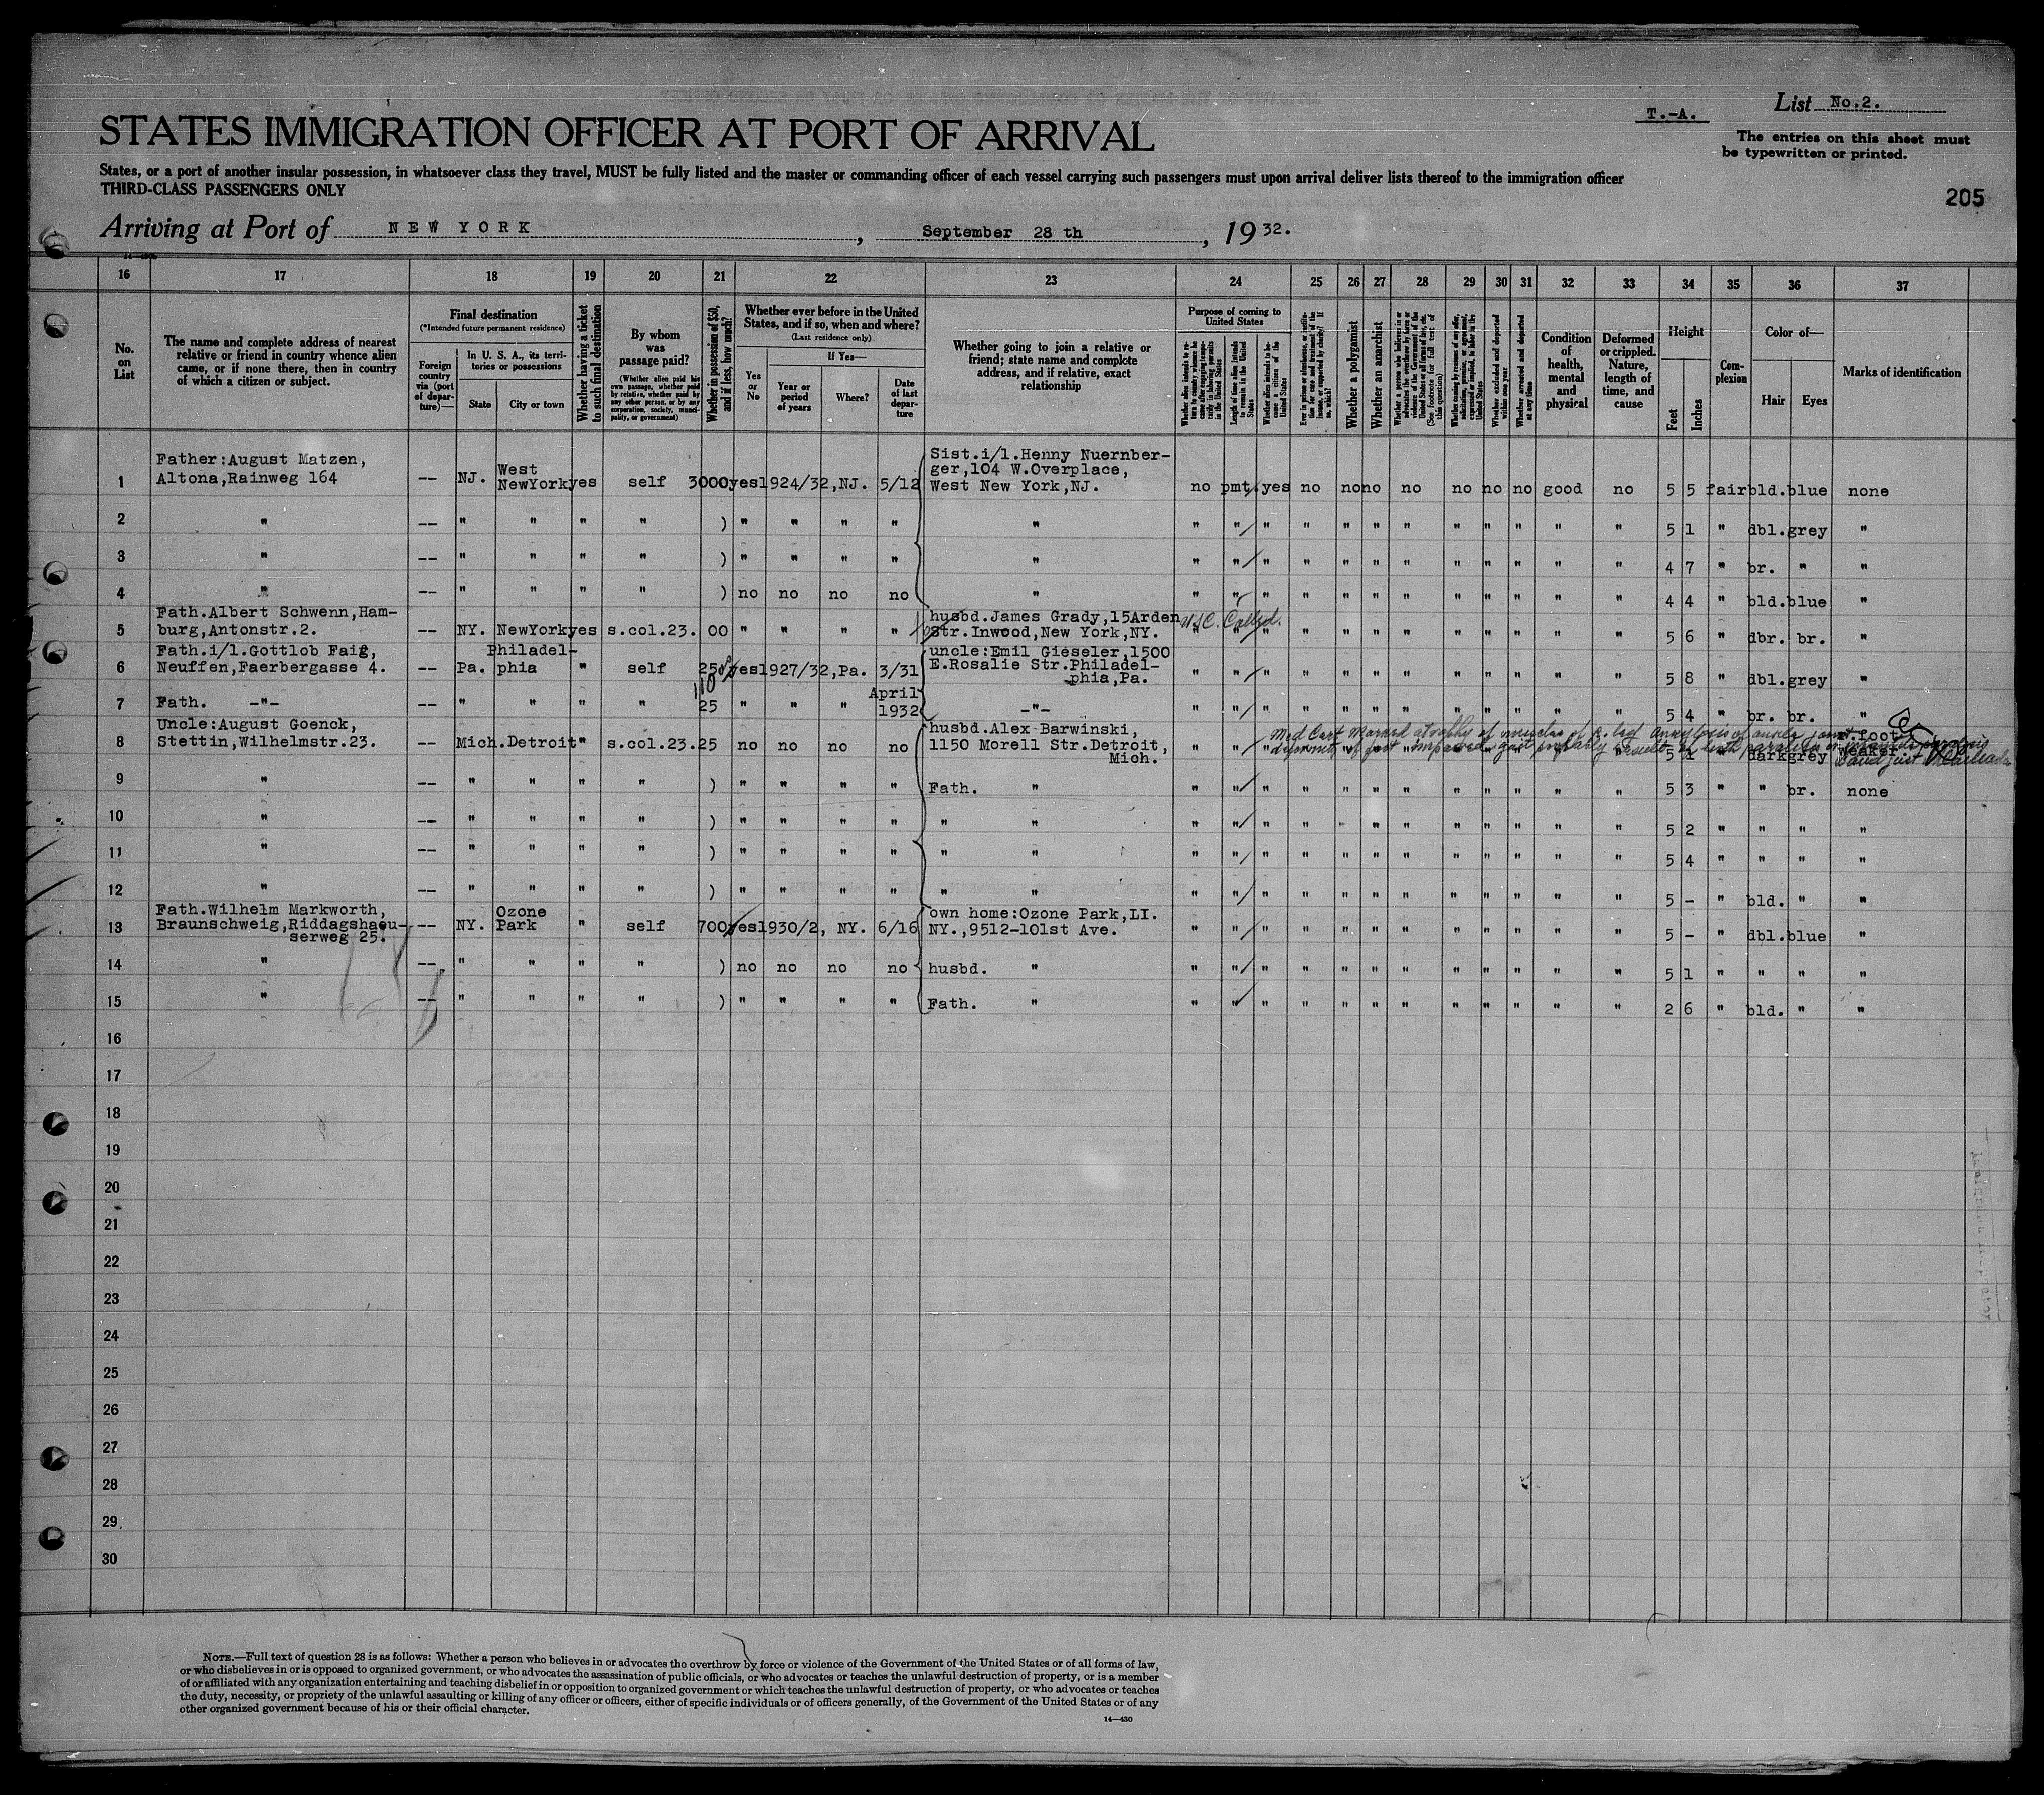 T.-A.
List No.2.
STATES IMMIGRATION OFFICER AT PORT OF ARRIVAL
The entries on this sheet must
be typewritten or printed.
States, or a port of another insular possession, in whatsoever class they travel, MUST be fully listed and the master or commanding officer of each vessel carrying such passengers must upon arrival deliver lists thereof to the immigration officer
THIRD-CLASS PASSENGERS ONLY
205
Arriving at Port of NEW YORK, September 28 th, 19 32.
16 17 18 19 20 21 22 23 24 25 26 27 28 29 30 31 32 33 34 35 36 37
No. on List
The name and complete address of nearest relative or friend in country whence alien came, or if none there, then in country of which a citizen or subject.
Final destination
(*Intended future permanent residence)
Foreign country via (port of departure)—
In U. S. A., its territories or possessions
State
City or town
Whether having a ticket to such final destination
By whom was passage paid?
(Whether alien paid his own passage, whether paid by relative, whether paid by any other person, or by any corporation, society, municipality, or government)
Whether in possession of $50, and if less, how much?
Whether ever before in the United States, and if so, when and where?
(Last residence only)
Yes or No
If Yes—
Year or period of years
Where?
Date of last departure
Whether going to join a relative or friend; state name and complete address, and if relative, exact relationship
Purpose of coming to United States
Length of time alien intends to remain in the United States
Whether alien intends to become a citizen of the United States
Whether a polygamist
Whether an anarchist
Whether excluded and deported within one year
Whether arrested and deported at any time
Condition of health, mental and physical
Deformed or crippled. Nature, length of time, and cause
Height
Feet
Inches
Complexion
Color of—
Hair
Eyes
Marks of identification
1 Father:August Matzen, Altona,Rainweg 164 -- NJ. West NewYork yes self 3000 yes 1924/32, NJ. 5/12 Sist.i/l.Henny Nuernberger,104 W.Overplace, West New York,NJ. no pmt. yes no no no no no no no good no 5 5 fair bld. blue none
2 " -- " " " " ) " " " " " " " " " " " " " " " " " 5 1 " dbl. grey "
3 " -- " " " " ) " " " " " " " " " " " " " " " " " 4 7 " br. " "
4 " -- " " " " ) no no no no " " " " " " " " " " " " " 4 4 " bld. blue "
5 Fath.Albert Schwenn,Hamburg,Antonstr.2. -- NY. NewYork yes s.col.23. 00 " " " " husbd.James Grady,15Arden Str.Inwood,New York,NY. " " " " " " " " " " " " 5 6 " dbr. br. "
6 Fath.i/l.Gottlob Faig, Neuffen,Faerbergasse 4. -- Pa. Philadelphia " self 250 yes 1927/32, Pa. 3/31 uncle:Emil Gieseler,1500 E.Rosalie Str.Philadelphia,Pa. " " " " " " " " " " " " 5 8 " dbl. grey "
7 Fath. -"- -- " " " " 25 " " " April 1932 -"- " " " " " " " " " " " " 5 4 " br. br. "
8 Uncle:August Goenck, Stettin,Wilhelmstr.23. -- Mich. Detroit " s.col.23. 25 no no no no husbd.Alex Barwinski, 1150 Morell Str.Detroit, Mich. " " " 5 1 " dark grey r.foot weaker
9 " -- " " " " ) " " " " Fath. " " " " " " " " " " " " " 5 3 " " br. none
10 " -- " " " " ) " " " " " " " " " " " " " " " " " " 5 2 " " " "
11 " -- " " " " ) " " " " " " " " " " " " " " " " " " 5 4 " " " "
12 " -- " " " " ) " " " " " " " " " " " " " " " " " " 5 - " bld. " "
13 Fath.Wilhelm Markworth, Braunschweig,Riddagshaeuserweg 25. -- NY. Ozone Park " self 700 yes 1930/2, NY. 6/16 own home:Ozone Park,LI. NY.,9512-101st Ave. " " " " " " " " " " " " 5 - " dbl. blue "
14 " -- " " " " ) no no no no husbd. " " " " " " " " " " " " " 5 1 " " " "
15 " -- " " " " ) " " " " Fath. " " " " " " " " " " " " " 2 6 " bld. " "
16
17
18
19
20
21
22
23
24
25
26
27
28
29
30
NOTE.—Full text of question 28 is as follows: Whether a person who believes in or advocates the overthrow by force or violence of the Government of the United States or of all forms of law,
or who disbelieves in or is opposed to organized government, or who advocates the assassination of public officials, or who advocates or teaches the unlawful destruction of property, or is a member
of or affiliated with any organization entertaining and teaching disbelief in or opposition to organized government or which teaches the unlawful destruction of property, or who advocates or teaches
the duty, necessity, or propriety of the unlawful assaulting or killing of any officer or officers, either of specific individuals or of officers generally, of the Government of the United States or of any
other organized government because of his or their official character.
14—430